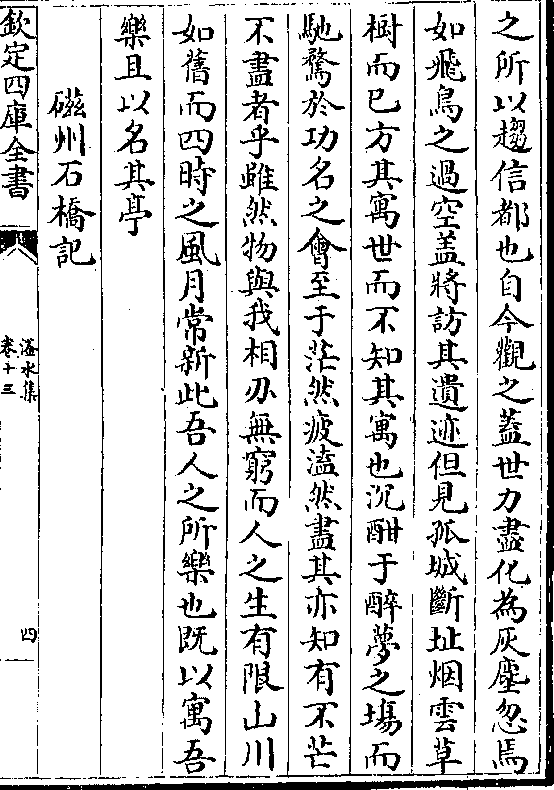 之所以趨信都也自今觀之蓋世力盡化為灰塵忽焉
如飛鳥之過空蓋將訪其遺迹但見孤城斷址烟雲草
樹而已方其寓世而不知其寓也沉酣于醉夢之場而
馳騖於功名之會至于茫然疲溘然盡其亦知有不茫
不盡者乎雖然物與我相刃無窮而人之生有限山川
如舊而四時之風月常新此吾人之所樂也既以寓吾
樂且以名其亭
磁州石橋記
欽定四庫全書
滏水集
卷十三
四